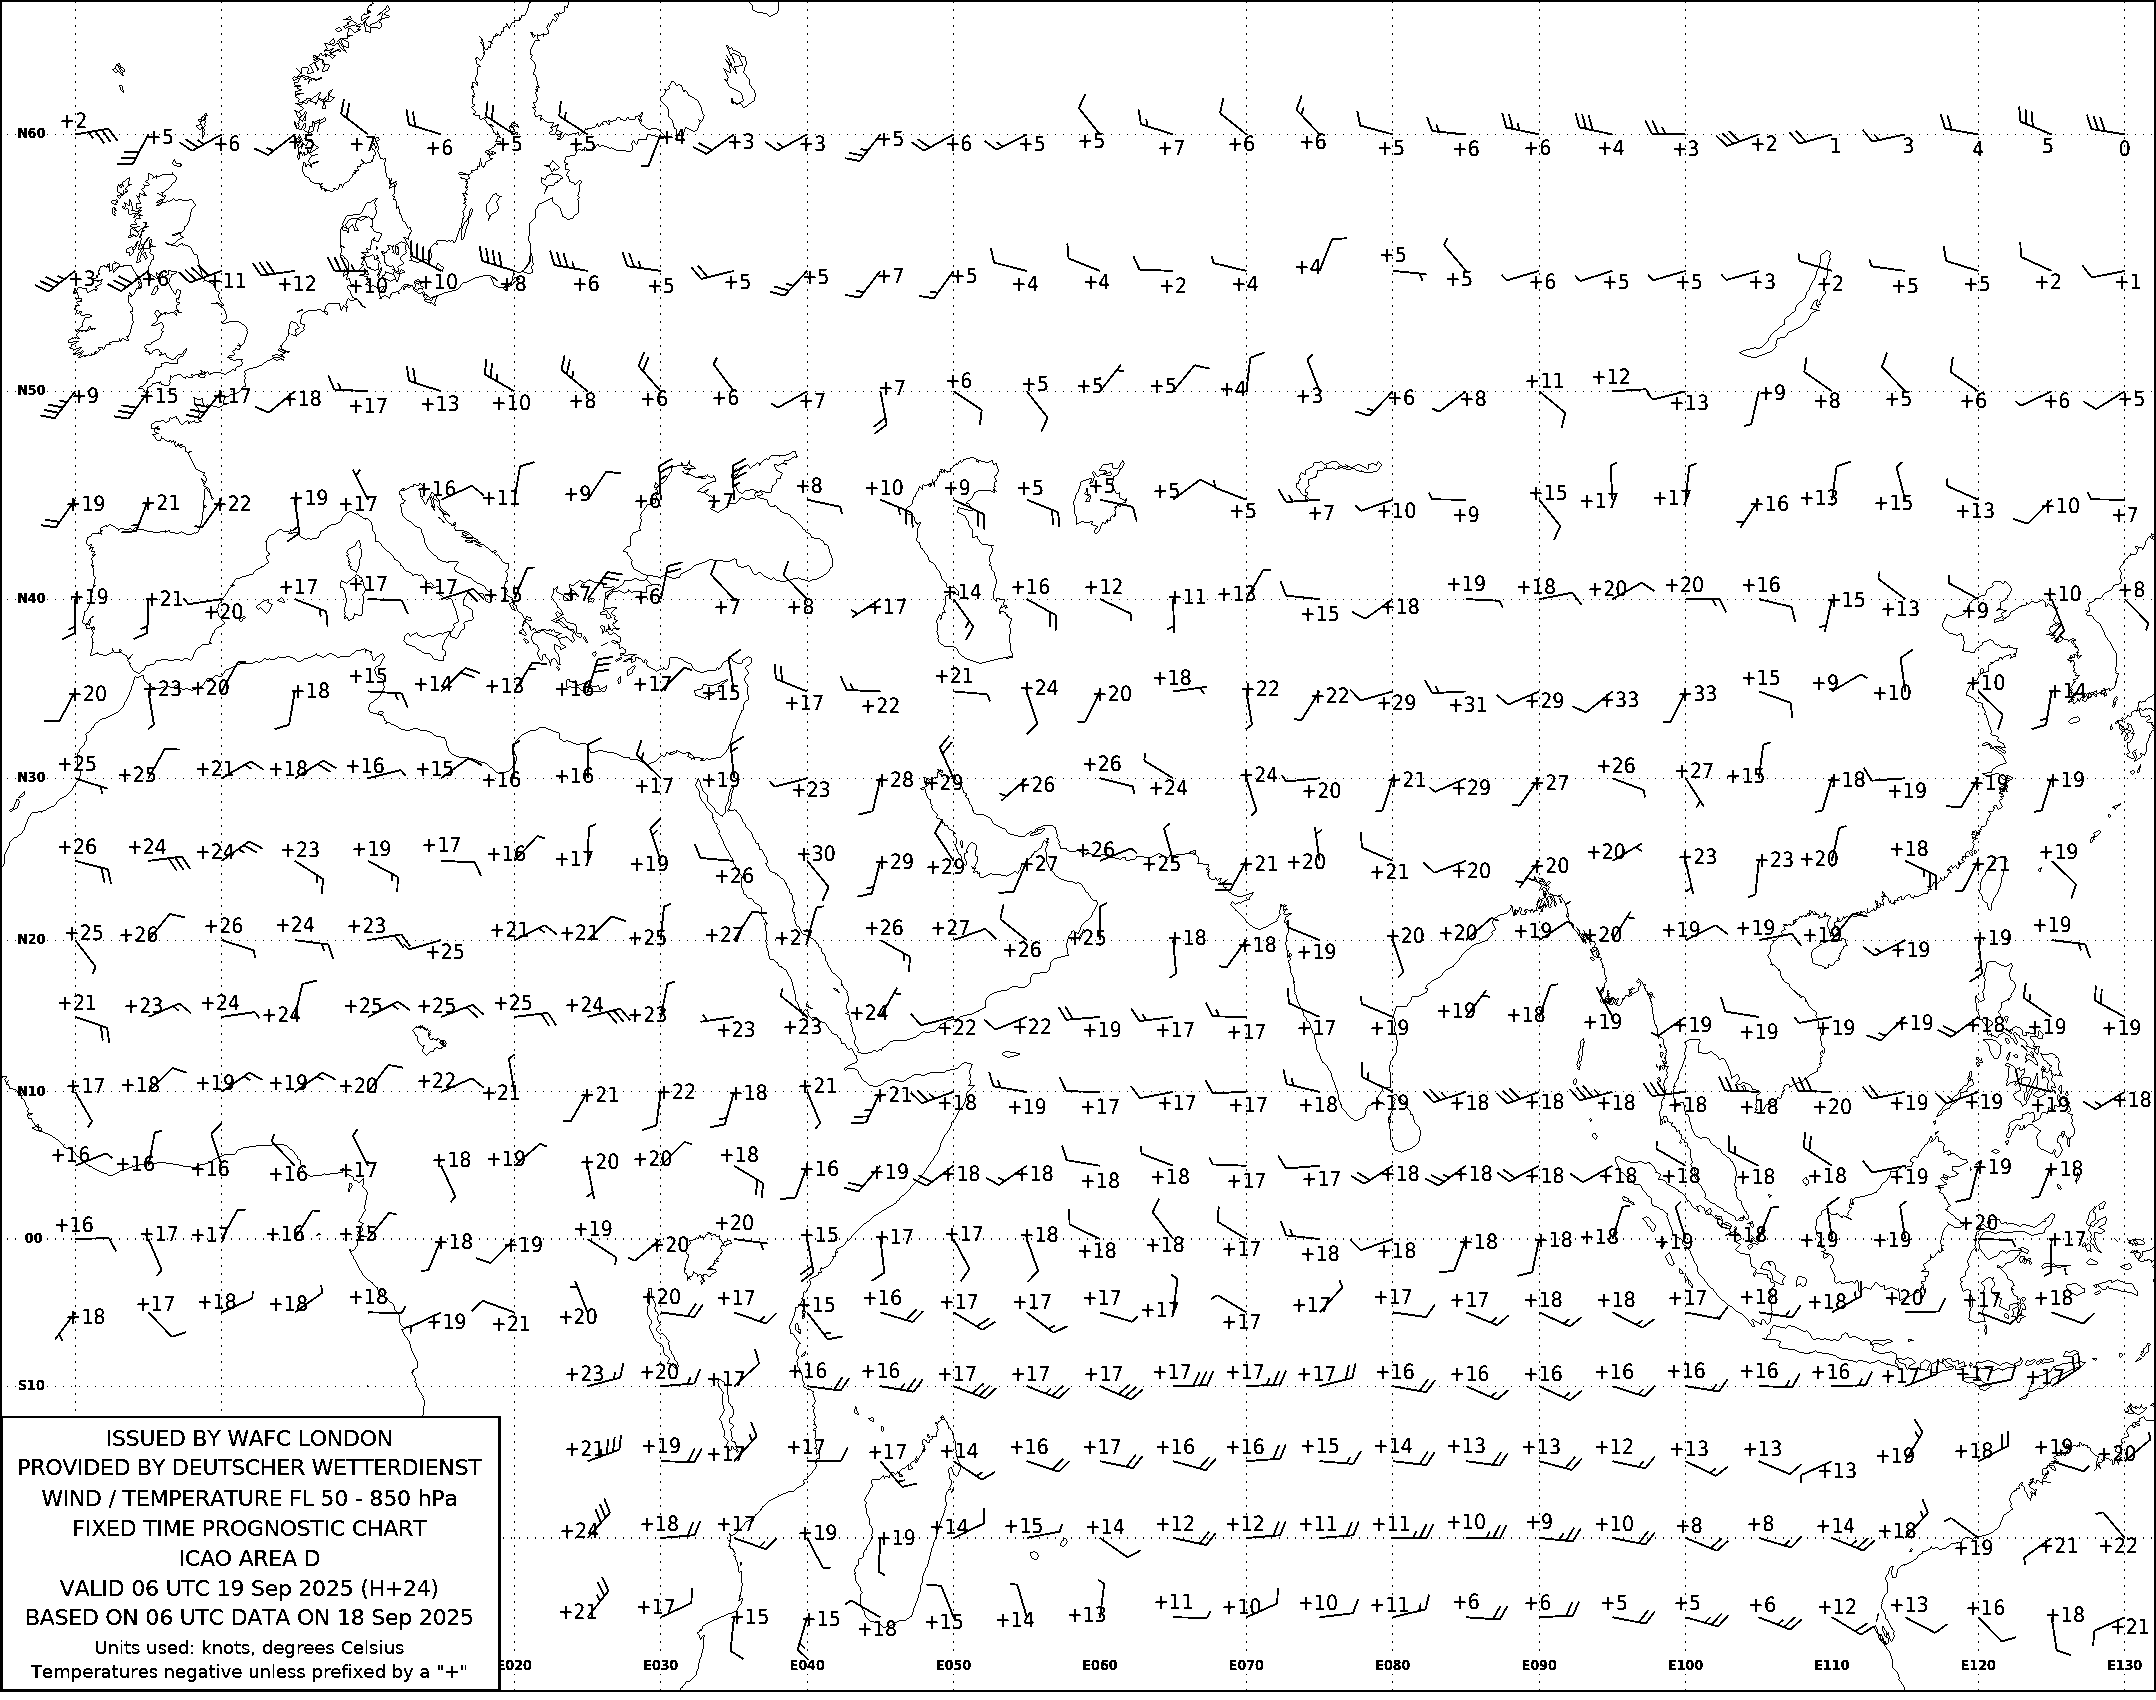 N60 +2 +5 +6 +5 +7 +6 +5 +5 +4 +3 +3 +5 +6 +5 +5 +7 +6 +6 +5 +6 +6 +4 +3 +2 1 3 4 5 0
+3 +6 +11 +12 +10 +10 +8 +6 +5 +5 +5 +7 +5 +4 +4 +2 +4 +4 +5 +5 +6 +5 +5 +3 +2 +5 +5 +2 +1
N50 +9 +15 +17 +18 +17 +13 +10 +8 +6 +6 +7 +7 +6 +5 +5 +5 +4 +3 +6 +8 +11 +12 +13 +9 +8 +5 +6 +6 +5
+19 +21 +22 +19 +17 +16 +11 +9 +6 +7 +8 +10 +9 +5 +5 +5 +5 +7 +10 +9 +15 +17 +17 +16 +13 +15 +13 +10 +7
N40 +19 +21 +20 +17 +17 +17 +15 +7 +6 +7 +8 +17 +14 +16 +12 +11 +13 +15 +18 +19 +18 +20 +20 +16 +15 +13 +9 +10 +8
+20 +23 +20 +18 +15 +14 +13 +16 +17 +15 +17 +22 +21 +24 +20 +18 +22 +22 +29 +31 +29 +33 +33 +15 +9 +10 +10 +14
N30 +25 +25 +21 +18 +16 +15 +16 +16 +17 +19 +23 +28 +29 +26 +26 +24 +24 +20 +21 +29 +27 +26 +27 +15 +18 +19 +19 +19
+26 +24 +24 +23 +19 +17 +16 +17 +19 +26 +30 +29 +29 +27 +26 +25 +21 +20 +21 +20 +20 +20 +23 +23 +20 +18 +21 +19
N20 +25 +26 +26 +24 +23 +25 +21 +21 +25 +27 +27 +26 +27 +26 +25 +18 +18 +19 +20 +20 +19 +20 +19 +19 +19 +19 +19 +19
+21 +23 +24 +24 +25 +25 +25 +24 +23 +23 +23 +24 +22 +22 +19 +17 +17 +17 +19 +19 +18 +19 +19 +19 +19 +19 +18 +19 +19
N10 +17 +18 +19 +19 +20 +22 +21 +21 +22 +18 +21 +21 +18 +19 +17 +17 +17 +18 +19 +18 +18 +18 +18 +18 +20 +19 +19 +19 +18
+16 +16 +16 +16 +17 +18 +19 +20 +20 +18 +16 +19 +18 +18 +18 +18 +17 +17 +18 +18 +18 +18 +18 +18 +18 +19 +19 +18
00 +16 +17 +17 +16 +15 +18 +19 +19 +20 +20 +15 +17 +17 +18 +18 +18 +17 +18 +18 +18 +18 +18 +19 +18 +19 +19 +20 +17
+18 +17 +18 +18 +18 +19 +21 +20 +20 +17 +15 +16 +17 +17 +17 +17 +17 +17 +17 +17 +18 +18 +17 +18 +18 +20 +17 +18
S10 +23 +20 +17 +16 +16 +17 +17 +17 +17 +17 +17 +16 +16 +16 +16 +16 +16 +16 +17 +17 +17
+21 +19 +17 +17 +17 +14 +16 +17 +16 +16 +15 +14 +13 +13 +12 +13 +13 +13 +19 +18 +19 +20
+24 +18 +17 +19 +19 +14 +15 +14 +12 +12 +11 +11 +10 +9 +10 +8 +8 +14 +18 +19 +21 +22
+21 +17 +15 +15 +18 +15 +14 +13 +11 +10 +10 +11 +6 +6 +5 +5 +6 +12 +13 +16 +18 +21
ISSUED BY WAFC LONDON
PROVIDED BY DEUTSCHER WETTERDIENST
WIND / TEMPERATURE FL 50 - 850 hPa
FIXED TIME PROGNOSTIC CHART
ICAO AREA D
VALID 06 UTC 19 Sep 2025 (H+24)
BASED ON 06 UTC DATA ON 18 Sep 2025
Units used: knots, degrees Celsius
Temperatures negative unless prefixed by a "+"
E020 E030 E040 E050 E060 E070 E080 E090 E100 E110 E120 E130